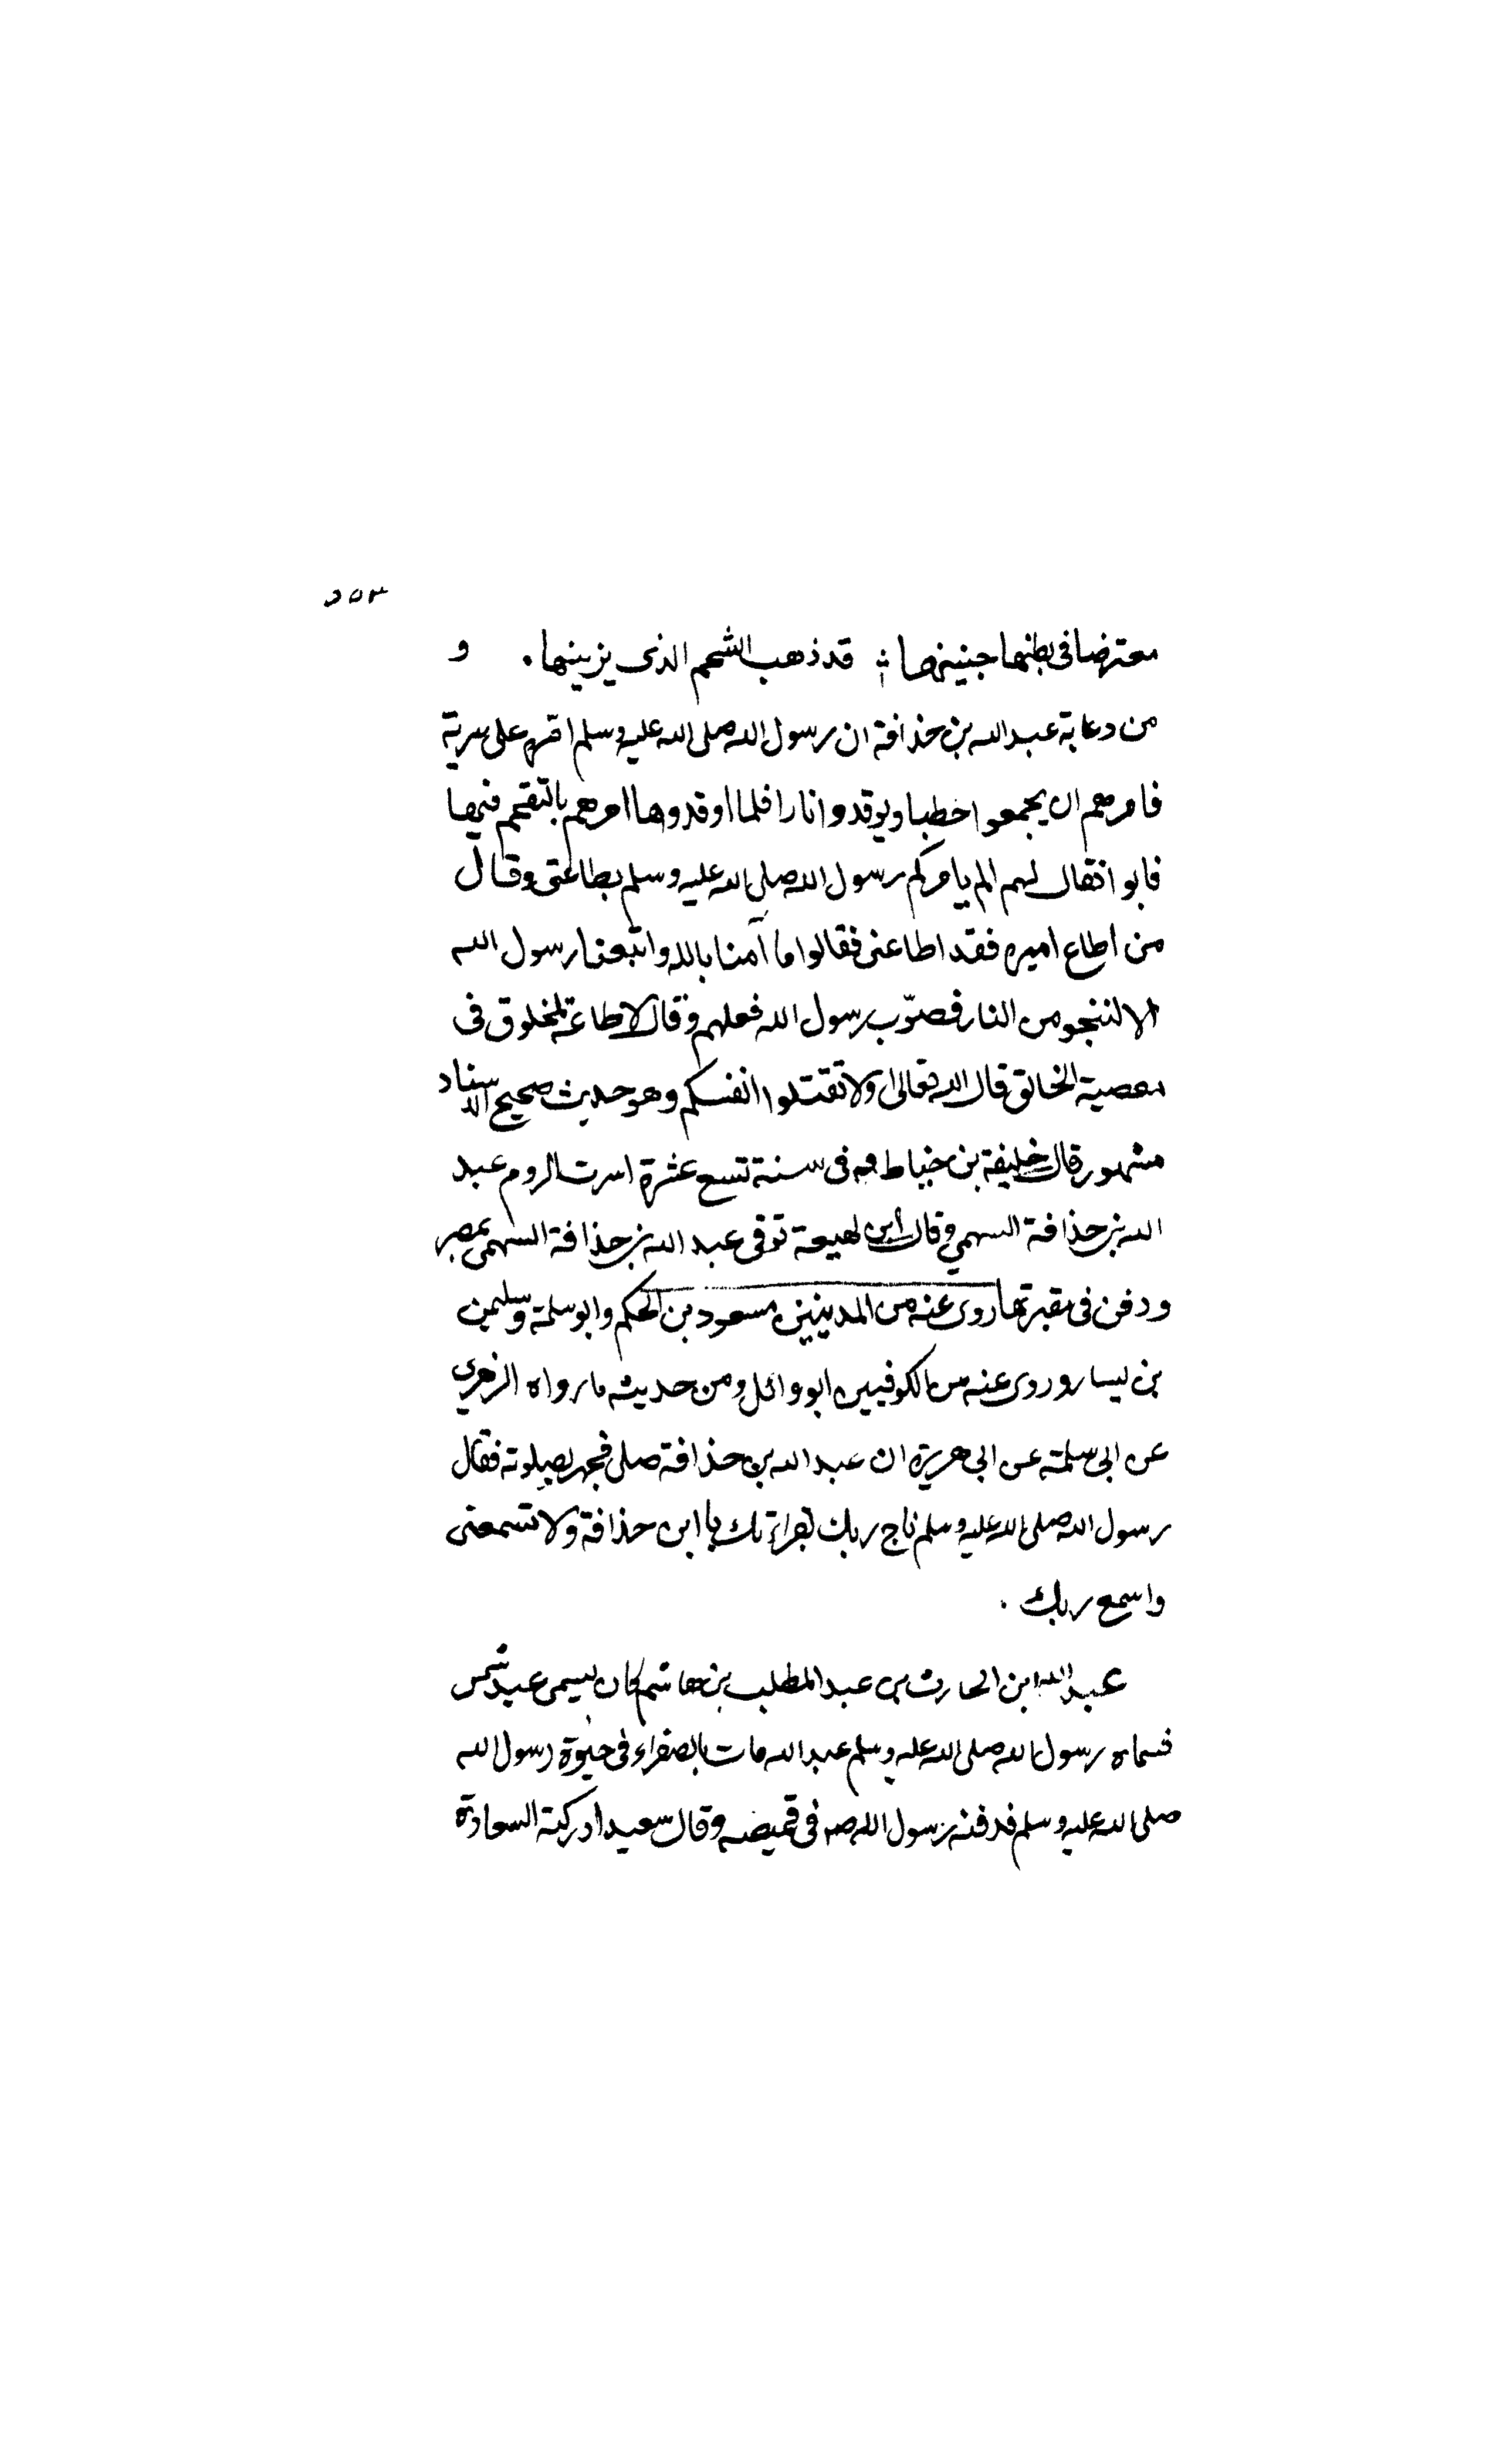 ٢٥٣
معترضا فى بطنها جنينها ؛ قد ذهب الشحم الذى يزينها . و
من دعابة عبد الله بن حذافة ان رسول الله صلى الله عليه وسلم امّره على سرية
فامرهم ان يجمعوا حطبا ويوقدوا نارا فلما اوقدوها امرهم بالتقحم فيها
فابوا فقال لهم الم يامركم رسول الله صلى الله عليه وسلم بطاعتى وقال
من اطاع اميره فقد اطاعنى فقالوا ما آمنا بالله واتبعنا رسول الله
الا لننجو من النار فصوّب رسول الله فعلهم وقال لاطاعة لمخلوق فى
معصية الخالق قال الله تعالى ولا تقتلوا انفسكم وهو حديث صحيح الاسناد
مشهور قال خليفة بن خياط وفى سنة تسع عشرة اسرت الروم عبد
الله بن حذافة السهمي وقال ابن لهيعة توفى عبد الله بن حذافة السهمى بمصر
ودفن فى مقبرتها روى عنه من المدينيين مسعود بن الحكم وابوسلمة وسليمن
بن يسار وروى عنه من الكوفيين ابو وائل ومن حديثه ما رواه الزهري
عن ابى سلمة عن ابى هريرة ان عبد الله بن حذافة صلى فجهر بصلوته فقال
رسول الله صلى الله عليه وسلم ناج ربك بقراءتك يا ابن حذافة ولا تسمعنى
واسمع ربك .
عبد الله ابن الحارث بن عبد المطلب بن هاشم كان يسمى عبد شمس
فسماه رسول الله صلى الله عليه وسلم عبد الله مات بالصفراء فى حيوة رسول الله
صلى الله عليه وسلم فدفنه رسول الله صـ فى قميصه وقال سعيد ادركته السعادة